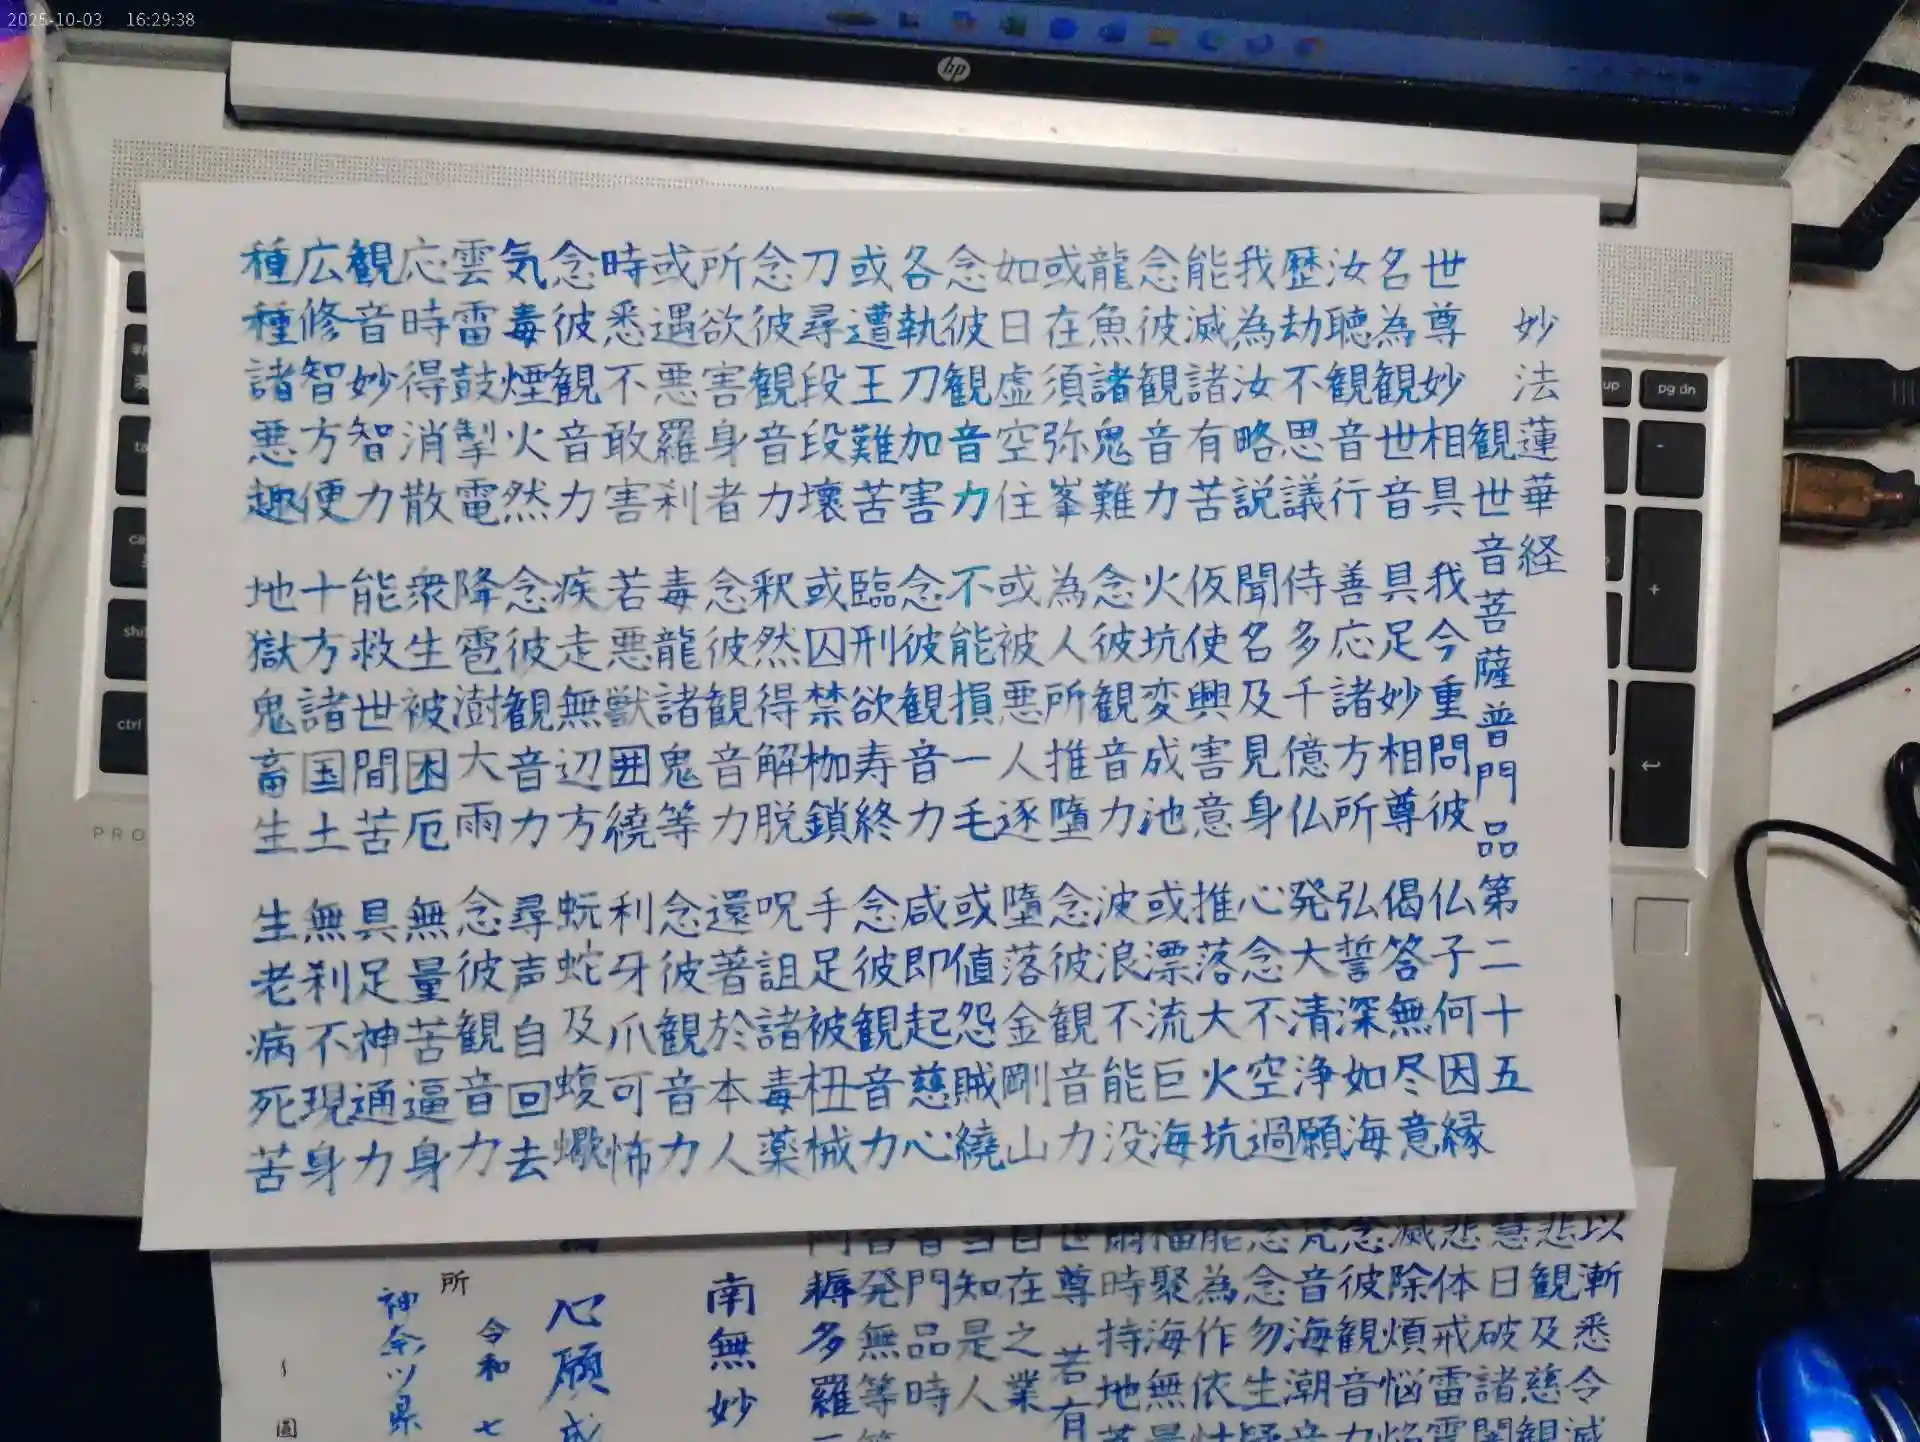 2025-10-03 16:29:38
hp
妙法蓮華経
観世音菩薩普門品第二十五
世尊妙相具 我今重問彼 仏子何因縁
名為観世音 具足妙相尊 偈答無尽意
汝聴観音行 善応諸方所 弘誓深如海
歴劫不思議 侍多千億仏 発大清浄願
我為汝略説 聞名及見身 心念不空過
能滅諸有苦 仮使興害意 推落大火坑
念彼観音力 火坑変成池 或漂流巨海
龍魚諸鬼難 念彼観音力 波浪不能没
或在須弥峯 為人所推墮 念彼観音力
如日虚空住 或被悪人逐 墮落金剛山
念彼観音力 不能損一毛 或値怨賊繞
各執刀加害 念彼観音力 咸即起慈心
或遭王難苦 臨刑欲寿終 念彼観音力
刀尋段段壊 或囚禁枷鎖 手足被杻械
念彼観音力 釈然得解脱 呪詛諸毒薬
所欲害身者 念彼観音力 還著於本人
或遇悪羅刹 毒龍諸鬼等 念彼観音力
時悉不敢害 若悪獣囲繞 利牙爪可怖
念彼観音力 疾走無辺方 蚖蛇及蝮蠍
気毒煙火然 念彼観音力 尋声自回去
雲雷鼓掣電 降雹澍大雨 念彼観音力
応時得消散 衆生被困厄 無量苦逼身
観音妙智力 能救世間苦 具足神通力
広修智方便 十方諸国土 無刹不現身
種種諸悪趣 地獄鬼畜生 生老病死苦
以漸悉令滅
悲観及慈観
慧日破諸闇
悲体戒雷
滅除煩悩焔
念彼観音力
梵音海潮音
念念勿生疑
能為作依怙
福聚海無量
爾時持地菩
世尊 若有
自在之業
当知是人
門品時
発無等等
耨多羅三
南無妙
心願成
令和七
所
神奈川県
圓
pg dn
up
shi
ctrl
PRO